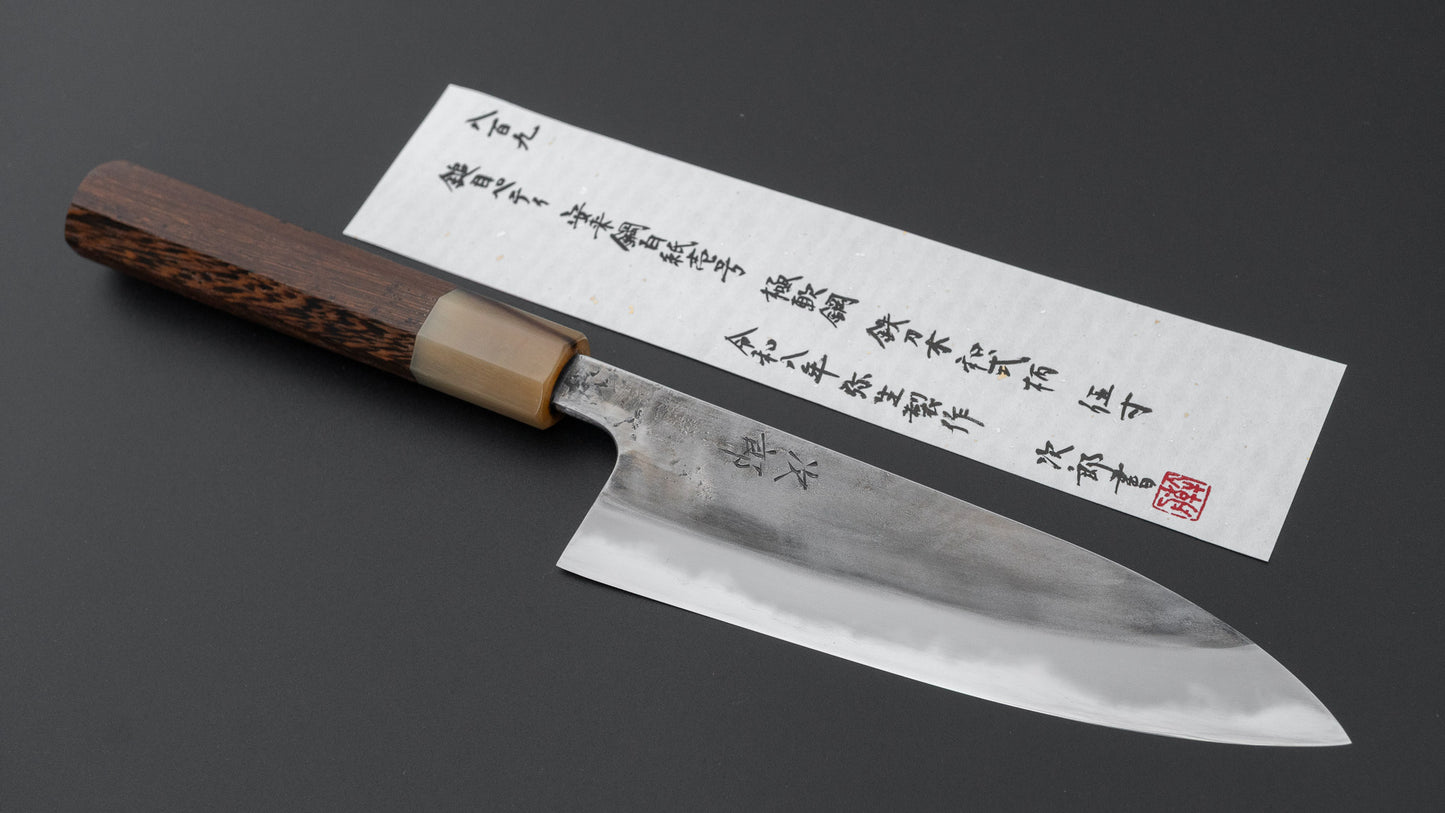 八百九
鎚目ペティ 安来鋼白紙壱号 極軟鋼 鉄刀木和式柄 伍寸
令和八年弥生製作
次郎書
次郎